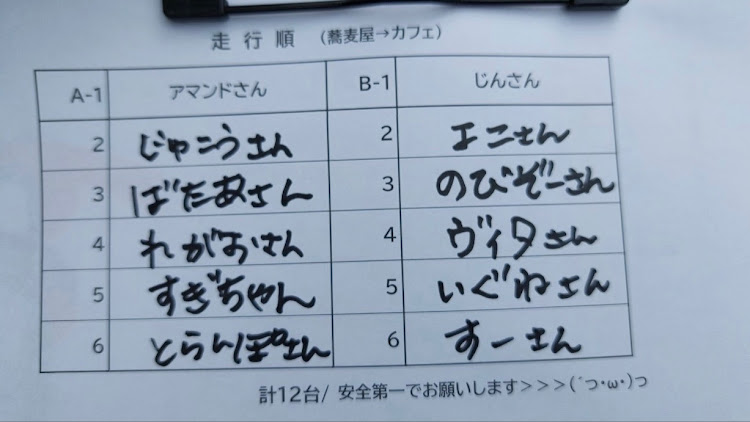 走行順 （蕎麦屋→カフェ）
A-1 アマンドさん B-1 じんさん
2 じゅこうさん 2 エニさん
3 ばたあさん 3 のびぞーさん
4 れがおさん 4 ヴィタさん
5 すぎちゃん 5 いぐねさん
6 とらんぽさん 6 すーさん
計12台/ 安全第一でお願いします>>>(´つ･ω･)っ